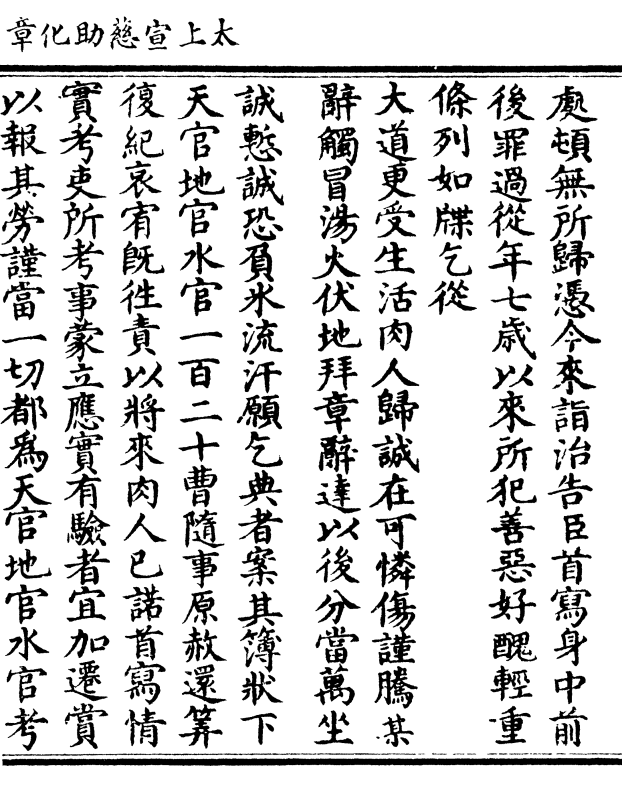 太上宣慈助化章
處頓無所歸憑今來詣治告臣首寫身中前
後罪過從年七歲以來所犯善惡好醜輕重
條列如牒乞從
大道更受生活肉人歸誠在可憐傷謹騰某
辭觸冒湯火伏地拜章辭達以後分當萬坐
誠慙誠恐負氷流汗願乞典者案其簿狀下
天官地官水官一百二十曹隨事原赦還筭
復紀哀宥旣徃責以將來肉人已諾首寫情
實考吏所考事蒙立應實有驗者宜加遷賞
以報其勞謹當一切都爲天官地官水官考